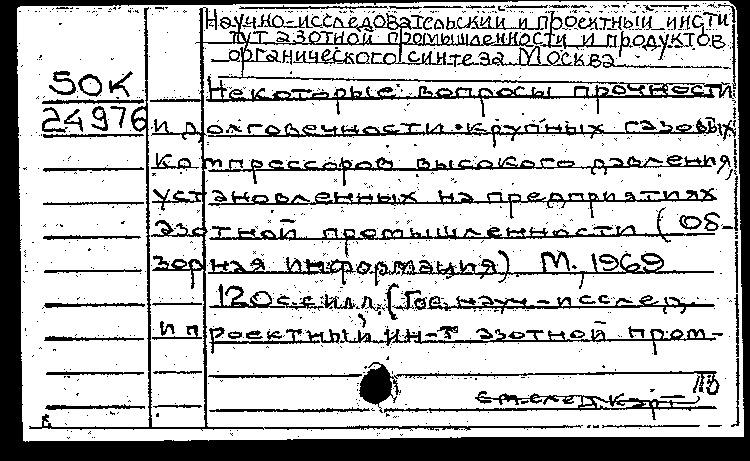 Научно-исследовательский и проектный инсти
тут азотной промышленности и продуктов
органического синтеза. Москва
50К
Некоторые вопросы прочности
24976
и долговечности крупных газовых
компрессоров высокого давления,
установленных на предприятиях
азотной промышленности (Об-
зорная информация) М., 1969
120 с. с илл. (Гос. науч.-исслед.
и проектный ин-т азотной пром-
см. след. карт.